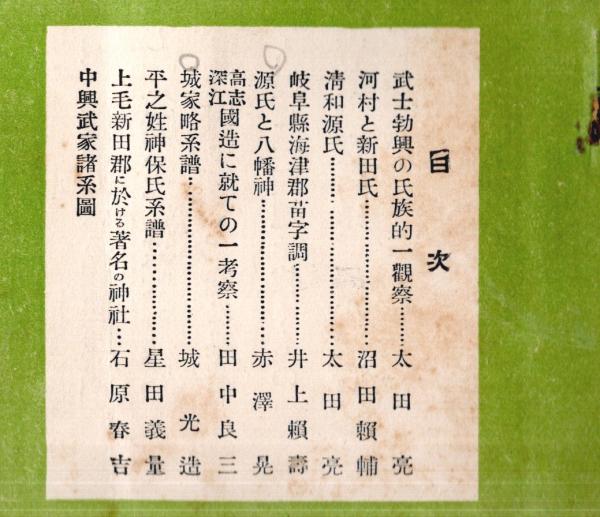 目次
武士勃興の氏族的一觀察……太田亮
河村と新田氏……沼田頼輔
淸和源氏……太田亮
岐阜縣海津郡苗字調……井上頼壽
源氏と八幡神……赤澤晃
高志深江國造に就ての一考察……田中良三
城家略系譜……城光造
平之姓神保氏系譜……星田義量
上毛新田郡に於ける著名の神社…石原春吉
中興武家諸系圖